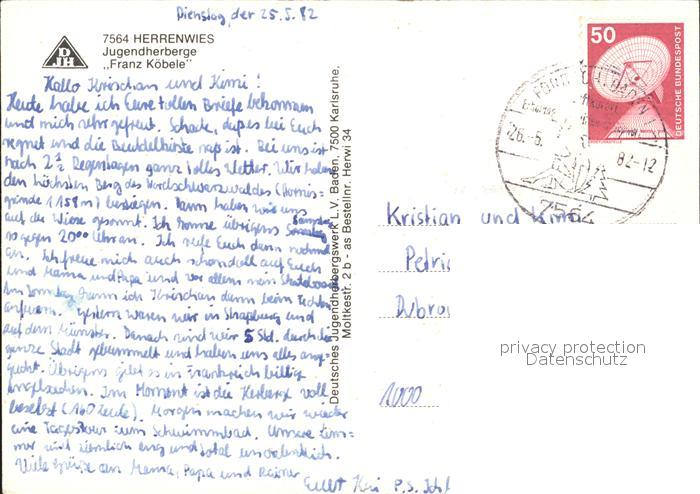 Dienstag, der 25.5.82
DJH
7564 HERRENWIES
Jugendherberge
„Franz Köbele"
Hallo Krischan und Kimi!
Heute habe ich Eure tollen Briefe bekommen
und mich sehr gefreut. Schade, daß es bei Euch
regnet und die ist. Bei uns ist
nach 2½ Regentagen ganz tolles Wetter. Wir haben
den höchsten Berg des Nordschwarzwaldes (Hornis-
grinde 1158m) bestiegen. Dann haben wir uns
auf der Wiese gesonnt. Ich komme übrigens Samstag
so gegen 20⁰⁰ Uhr an. Ich rufe Euch dann nochmal
an. Ich freue mich auch schon doll auf Euch
und Mama und Papa und vor allem mein
Am Sonntag kann ich Krischan dann beim
anfeuern. Gestern waren wir in Straßburg und
auf dem Münster. Danach sind wir 5 Std. durch die
ganze Stadt gebummelt und haben uns alles ange-
guckt. Übrigens gibt es in Frankreich billig
Im Moment ist die Herberge voll
besetzt (160 Leute). Morgen machen wir wieder
eine Tagestour zum Schwimmbad. Unsere Zim-
mer sind ziemlich eng und total unordentlich.
Viele Grüße an Mama, Papa und Rainer
P.S.
Deutsches Jugendherbergswerk L.V. Baden, 7500 Karlsruhe,
Moltkestr. 2 b - as Bestellnr. Herwi 34
50
DEUTSCHE BUNDESPOST
26.-5.
82-12
7564
Kristian und
1000
privacy protection
Datenschutz